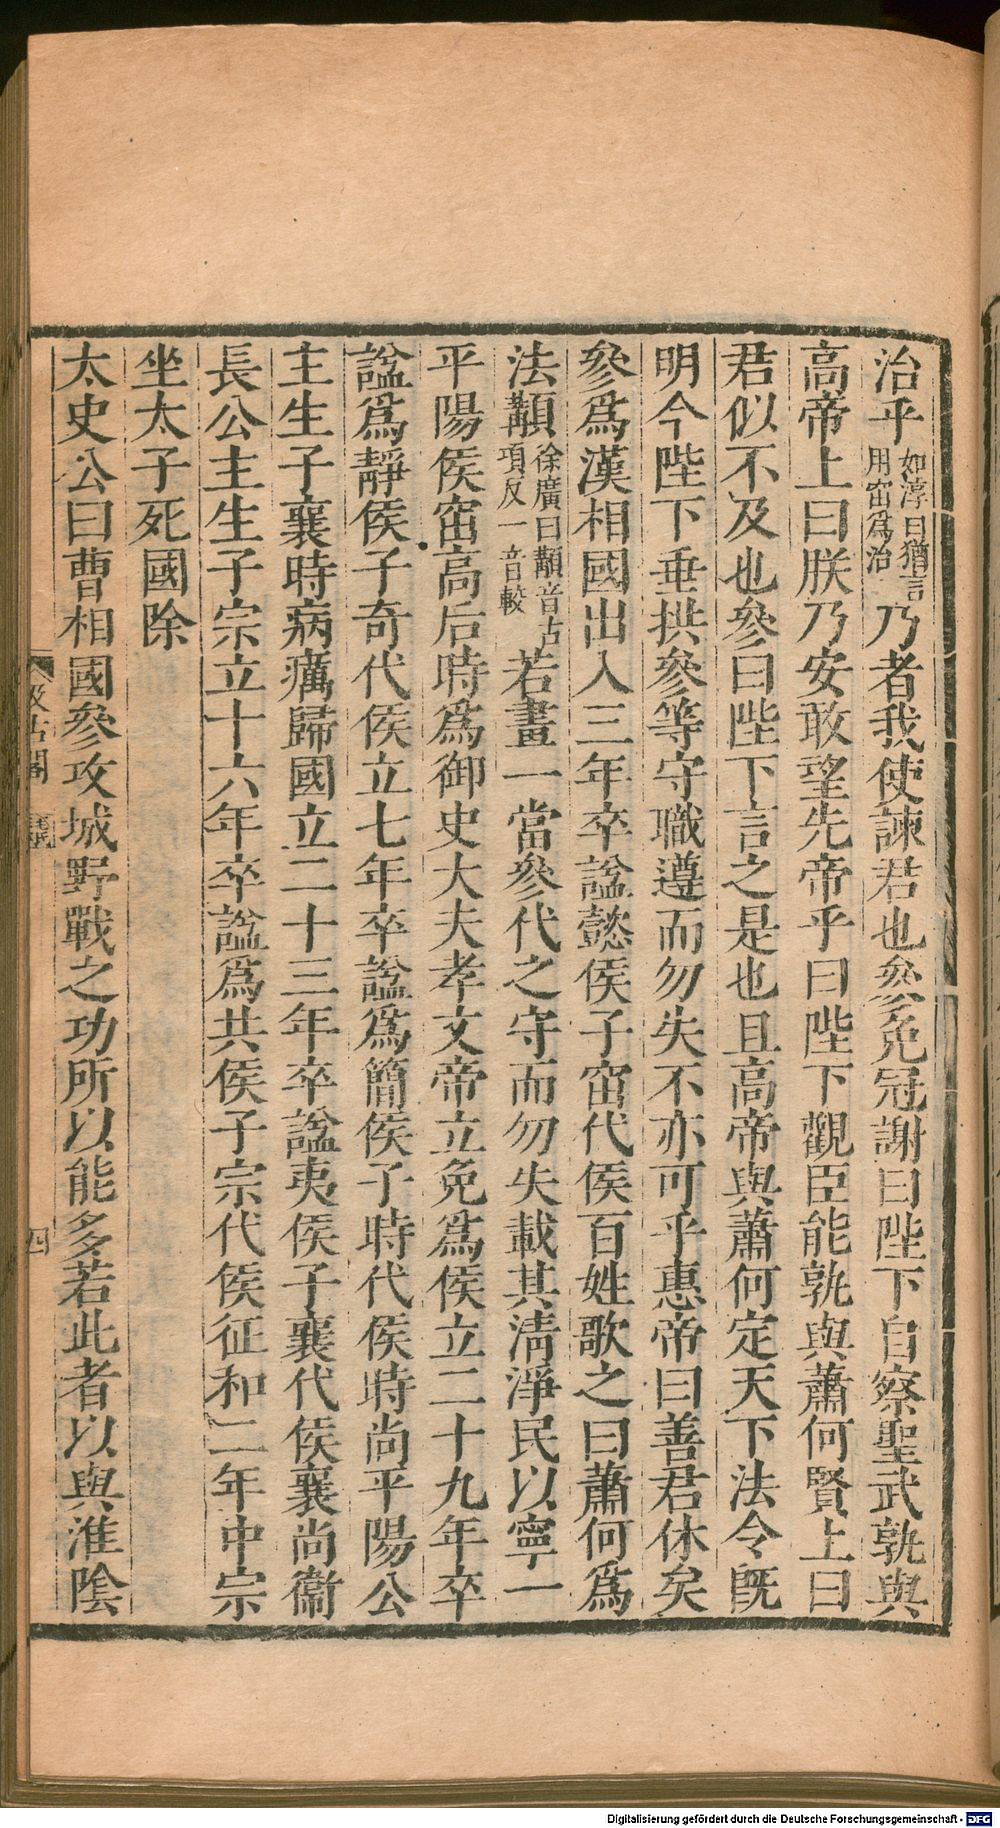 治乎如淳曰猶言用窋為治乃者我使諫君也參免冠謝曰陛下自察聖武孰與
高帝上曰朕乃安敢望先帝乎曰陛下觀臣能孰與蕭何賢上曰
君似不及也參曰陛下言之是也且高帝與蕭何定天下法令旣
明今陛下垂拱參等守職遵而勿失不亦可乎惠帝曰善君休矣
參爲漢相國出入三年卒諡懿侯子窋代侯百姓歌之曰蕭何爲
法顜徐廣曰顜音古項反一音較若畫一曹參代之守而勿失載其淸淨民以寧一
平陽侯窋高后時爲御史大夫孝文帝立免爲侯立二十九年卒
諡爲靜侯子奇代侯立七年卒諡爲簡侯子時代侯時尚平陽公
主生子襄時病癘歸國立二十三年卒諡夷侯子襄代侯襄尚衞
長公主生子宗立十六年卒諡爲共侯子宗代侯征和二年中宗
坐太子死國除
太史公曰曹相國參攻城野戰之功所以能多若此者以與淮陰
汲古閣
四
Digitalisierung gefördert durch die Deutsche Forschungsgemeinschaft - DFG